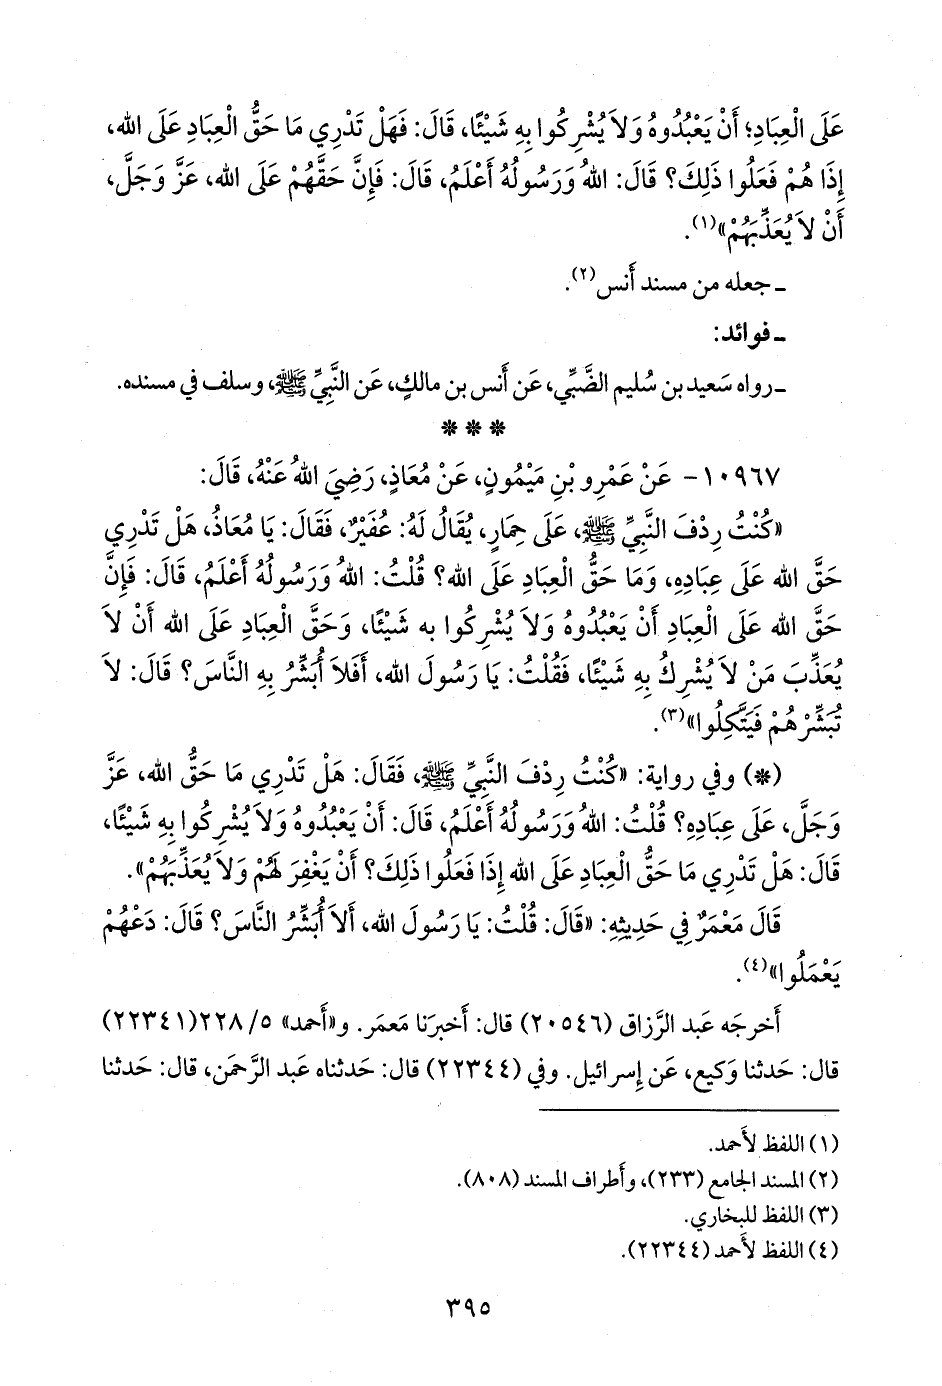 عَلَى الْعِبَادِ؛ أَنْ يَعْبُدُوهُ وَلاَ يُشْرِكُوا بِهِ شَيْئًا، قَالَ: فَهَلْ تَدْرِي مَا حَقُّ الْعِبَادِ عَلَى الله،
إِذَا هُمْ فَعَلُوا ذَلِكَ؟ قَالَ: اللهُ وَرَسُولُهُ أَعْلَمُ، قَالَ: فَإِنَّ حَقَّهُمْ عَلَى الله، عَزَّ وَجَلَّ،
أَنْ لاَ يُعَذِّبَهُمْ»(١).
ـ جعله من مسند أَنس(٢).
ـ فوائد:
ـ رواه سَعيد بن سُليم الضَّبِّي، عَن أَنس بن مالكٍ، عَن النَّبِيِّ ﷺ، وسلف في مسنده.
* * *
١٠٩٦٧- عَنْ عَمْرِو بْنِ مَيْمُونٍ، عَنْ مُعَاذٍ، رَضِيَ اللهُ عَنْهُ، قَالَ:
«كُنْتُ رِدْفَ النَّبِيِّ ﷺ، عَلَى حِمَارٍ، يُقَالُ لَهُ: عُفَيْرٌ، فَقَالَ: يَا مُعَاذُ، هَلْ تَدْرِي
حَقَّ الله عَلَى عِبَادِهِ، وَمَا حَقُّ الْعِبَادِ عَلَى الله؟ قُلْتُ: اللهُ وَرَسُولُهُ أَعْلَمُ، قَالَ: فَإِنَّ
حَقَّ الله عَلَى الْعِبَادِ أَنْ يَعْبُدُوهُ وَلاَ يُشْرِكُوا بِه شَيْئًا، وَحَقَّ الْعِبَادِ عَلَى الله أَنْ لاَ
يُعَذِّبَ مَنْ لاَ يُشْرِكُ بِهِ شَيْئًا، فَقُلْتُ: يَا رَسُولَ الله، أَفَلاَ أُبَشِّرُ بِهِ النَّاسَ؟ قَالَ: لاَ
تُبَشِّرْهُمْ فَيَتَّكِلُوا»(٣).
(*) وفي رواية: «كُنْتُ رِدْفَ النَّبِيِّ ﷺ، فَقَالَ: هَلْ تَدْرِي مَا حَقُّ الله، عَزَّ
وَجَلَّ، عَلَى عِبَادِهِ؟ قُلْتُ: اللهُ وَرَسُولُهُ أَعْلَمُ، قَالَ: أَنْ يَعْبُدُوهُ وَلاَ يُشْرِكُوا بِهِ شَيْئًا،
قَالَ: هَلْ تَدْرِي مَا حَقُّ الْعِبَادِ عَلَى الله إِذَا فَعَلُوا ذَلِكَ؟ أَنْ يَغْفِرَ لَهُمْ وَلاَ يُعَذِّبَهُمْ».
قَالَ مَعْمَرٌ فِي حَدِيثِهِ: «قَالَ: قُلْتُ: يَا رَسُولَ الله، أَلاَ أُبَشِّرُ النَّاسَ؟ قَالَ: دَعْهُمْ
يَعْمَلُوا»(٤).
أَخرجَه عَبد الرَّزاق (٢٠٥٤٦) قال: أَخبرَنا مَعمَر. و«أَحمد» ٥/ ٢٢٨(٢٢٣٤١)
قال: حَدثنا وَكيع، عَن إِسرائيل. وفي (٢٢٣٤٤) قال: حَدثناه عَبد الرَّحمَن، قال: حَدثنا
(١) اللفظ لأَحمد.
(٢) المسند الجامع (٢٣٣)، وأَطراف المسند (٨٠٨).
(٣) اللفظ للبخاري.
(٤) اللفظ لأَحمد (٢٢٣٤٤).
٣٩٥